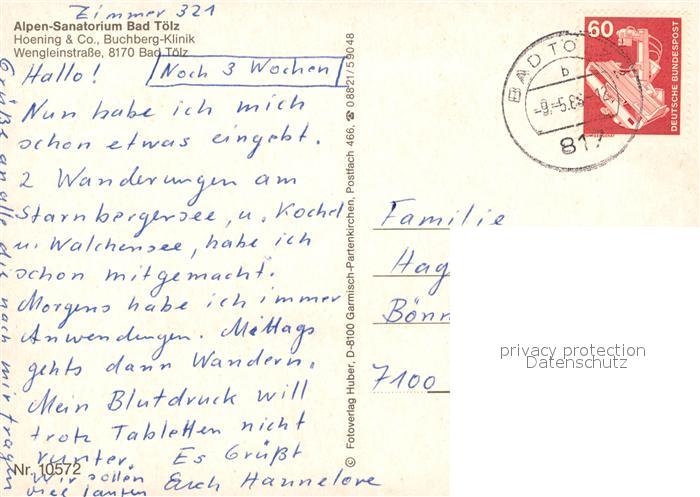 Zimmer 321
Alpen-Sanatorium Bad Tölz
Hoening & Co., Buchberg-Klinik
Wengleinstraße, 8170 Bad Tölz
Hallo! Noch 3 Wochen
Nun habe ich mich
schon etwas eingebt.
2 Wanderungen am
Starnbergersee, u. Kochel
u. Walchensee, habe ich
schon mitgemacht.
Morgens habe ich immer
Anwendungen. Mittags
gehts dann Wandern.
Mein Blutdruck will
trotz Tabletten nicht
runter. Es Grüßt
Wir sollen Euch Hannelore
viel laufen
Nr. 10572
Grüße an alle die nach mir fragen
© Fotoverlag Huber, D-8100 Garmisch-Partenkirchen, Postfach 466, ☎ 0 88 21/5 90 48
BAD TÖ
b
817
60
DEUTSCHE BUNDESPOST
Familie
Hag
Bönn
7100
privacy protection
Datenschutz